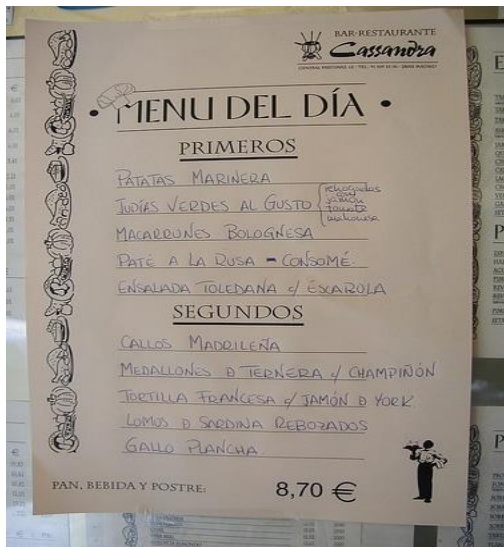 BAR-RESTAURANTE
Cassandra
MENU DEL DÍA
PRIMEROS
PATATAS MARINERA
JUDÍAS VERDES AL GUSTO { rehogadas con jamón tomate mahonesa
MACARRONES BOLOGNESA
PATÉ A LA RUSA - CONSOMÉ.
ENSALADA TOLEDANA c/ ESCAROLA
SEGUNDOS
CALLOS MADRILEÑA
MEDALLONES D TERNERA c/ CHAMPIÑÓN
TORTILLA FRANCESA c/ JAMÓN D YORK
LOMOS D SARDINA REBOZADOS
GALLO PLANCHA
PAN, BEBIDA Y POSTRE: 8,70 €